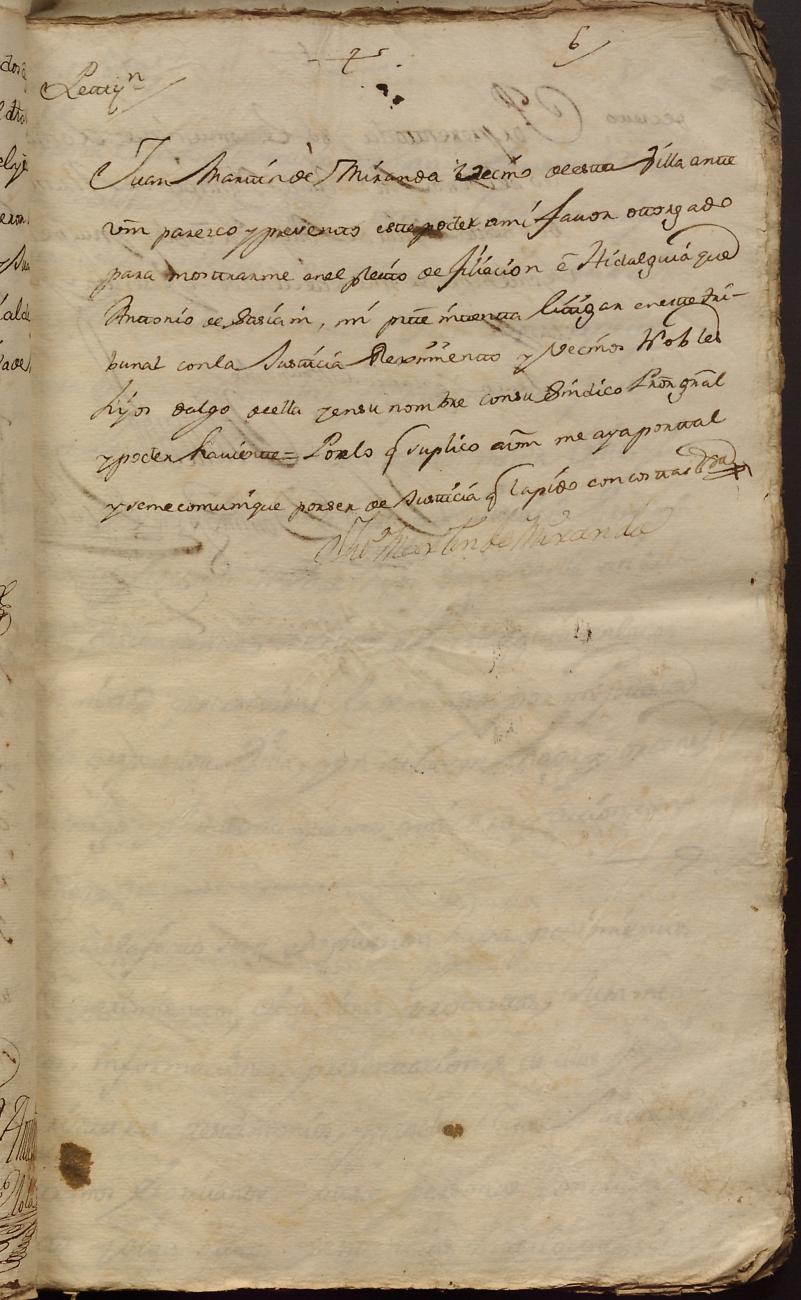 6
Petizⁿ
Juan Martin de Miranda Vecino de esta Villa ante
vm̄ parezco y presento este poder a mi favor otorgado
para mostrarme en el pleito de filiacion é Hidalguia que
Antonio de Sasiain, mi pṫe intenta litigar en este tri-
bunal con la Justicia Reximiento y Vecinos Nobles
hijos dalgo de ella y en su nombre con su Sindico Prōr gn̄al
y poder haviente = Por lo q̄ suplico a vm̄ me aya por tal
y se me comunique por ser de Justicia q̄ la pido con costas
Jnº Martin de Miranda